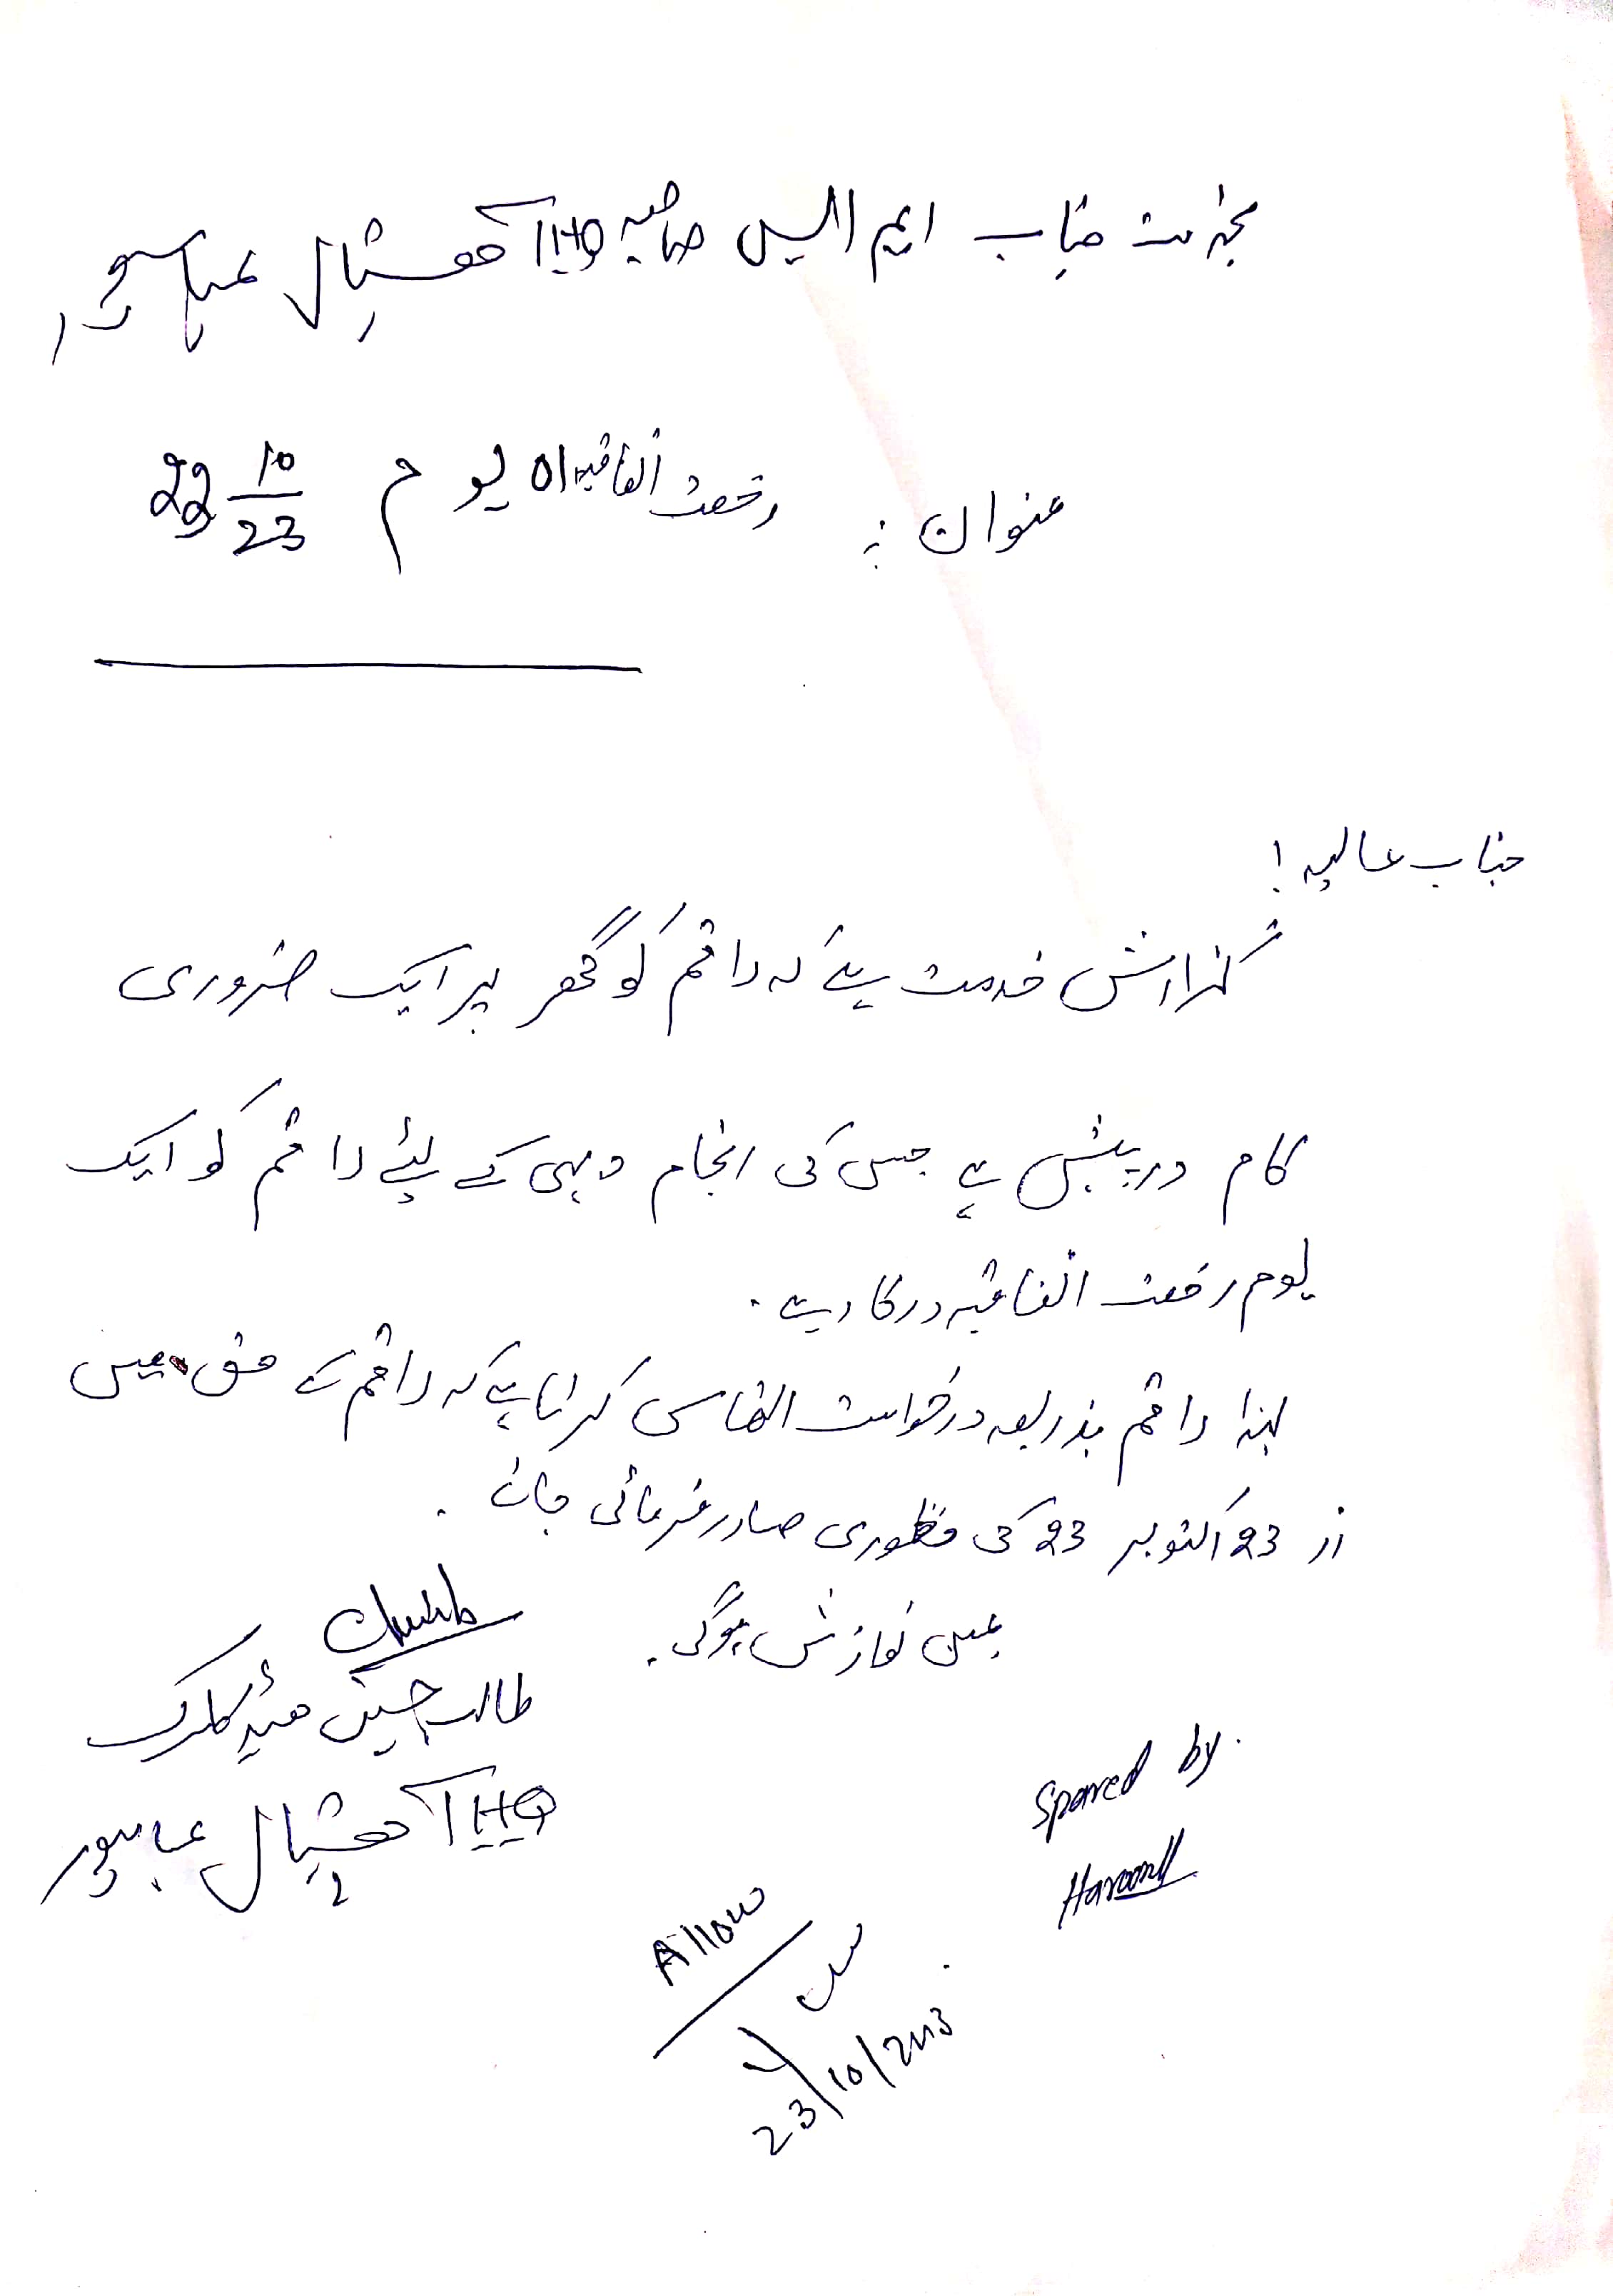 بخدمت جناب ایم ایس صاحبہ THQ ہسپتال عباسپور
عنوان : رخصت اتفاقیہ 01 یوم 23 10/23
جناب عالیہ !
گزارش خدمت ہے کہ راقم کو گھر پر ایک ضروری
کام درپیش ہے جس کی انجام دہی کے لئے راقم کو ایک
یوم رخصت اتفاقیہ درکار ہے۔
لہذا راقم بذریعہ درخواست التماس کرتا ہے کہ راقم کے حق میں
از 23 اکتوبر 23 کی منظوری صادر فرمائی جائے۔
عین نوازش ہوگی۔
طالب حسین ہیڈ کلرک
THQ ہسپتال عباسپور
Spared by.
Haroon
Allow
23/10/2023